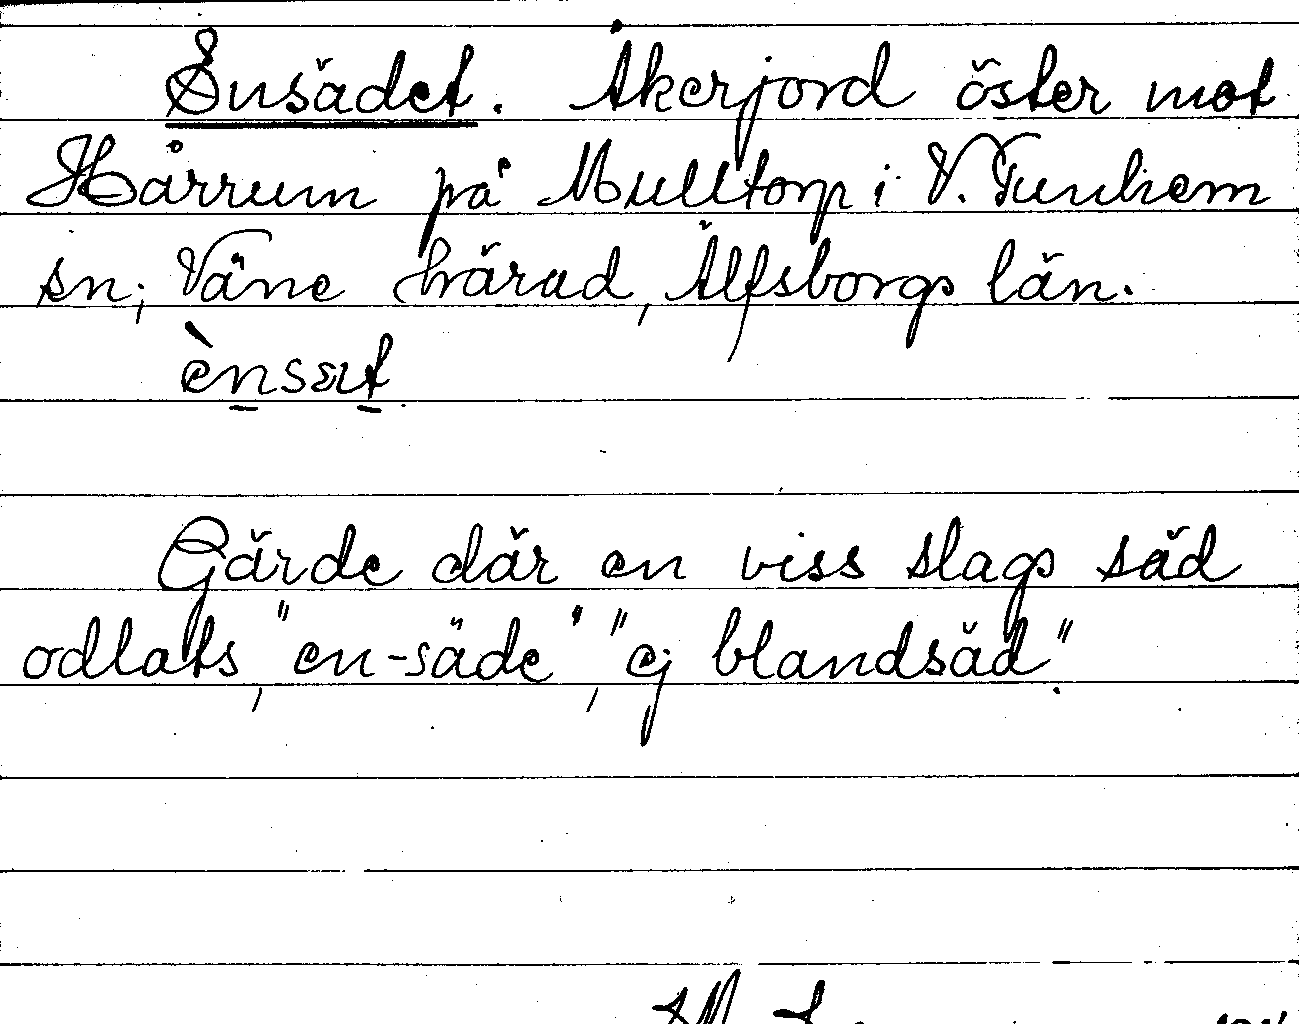 Ensädet. Åkerjord öster mot
Hårrum på Mulltorp i V. Tunhem
sn; Väne härad, Älfsborgs län.
ènsæt
Gärde där en viss slags säd
odlats, "en-säde", "ej blandsäd".